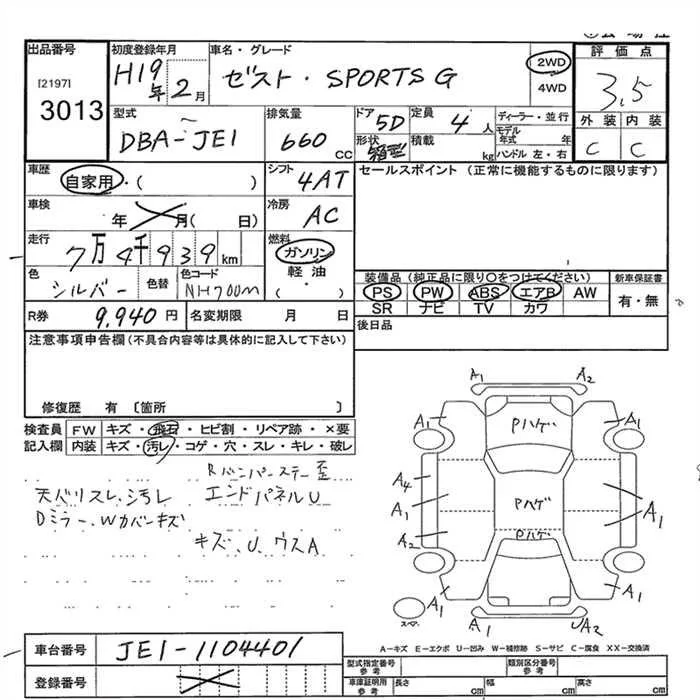 出品番号 初度登録年月 車名・グレード 評価点
[2197] 3013
H19年 2月 ゼスト・SPORTS G 2WD 4WD 3.5
型式 排気量 ドア 定員 ディーラー・並行 外装 内装
DBA-JE1 660 CC 5D 4人 モデル年式 年
形状 箱型 積載 kg ハンドル 左・右 C C
車歴 シフト セールスポイント (正常に機能するものに限ります)
自家用・( ) 4AT
車検 冷房
年 月( 日) AC
走行 燃料
7万4千939km ガソリン
色 色替 色コード 軽油
シルバー NH700m ( )
装備品 (純正品に限り○をつけてください) 新車保証書
PS PW ABS エアB AW 有・無
SR ナビ TV カワ
R券 9,940円 名変期限 月 日 後日品
注意事項申告欄 (不具合内容等は具体的に記入して下さい)
修復歴 有 〔箇所 〕
検査員 FW キズ・飛石・ヒビ割・リペア跡・×要
記入欄 内装 キズ・汚レ・コゲ・穴・スレ・キレ・破レ
Rバンパーステー歪
天バリスレ、汚レ エンドパネルU
Dミラー、Wカバーキズ
キズ、U、ウスA
A1 A2
A1 Pハゲ A1
A4
A1 Pハゲ A1
A2 Pハゲ
A1 A1
スペア A1 UA2
A-キズ E-エクボ U-凹み W-補修跡 S-サビ C-腐食 XX-交換済
車台番号 JE1-1104401
登録番号
型式指定番号 参考 類別区分番号 参考
車庫証明用 参考 長さ cm 幅 cm 高さ cm